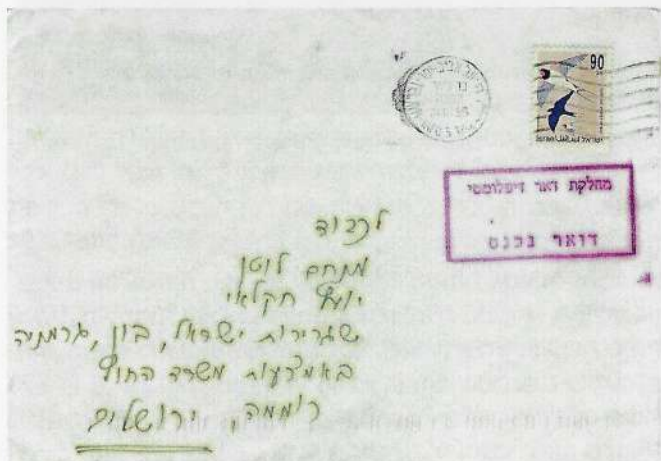 90
מחלקת דאר דיפלומטי
דואר נכנס
לכבוד
מנחם לוטן
יועץ חקלאי
שגרירות ישראל, בון, גרמניה
באמצעות משרד החוץ
רוממה, ירושלים